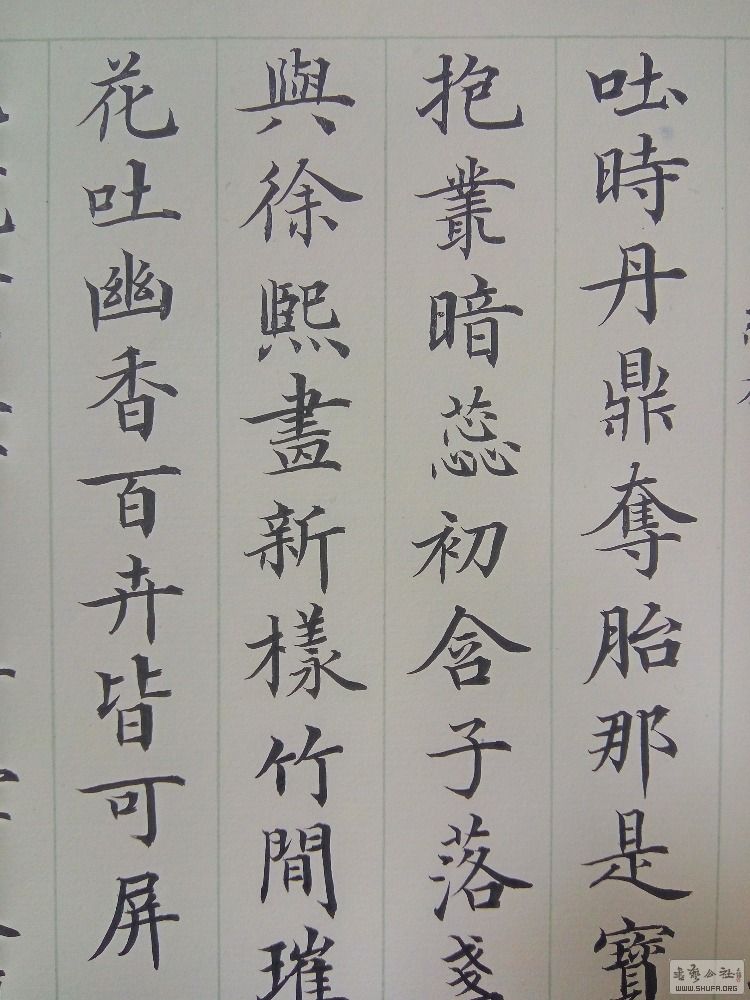 吐時丹鼎奪胎那是寶
抱叢暗蕊初含子落盞
與徐熙畫新樣竹間璀
花吐幽香百卉皆可屏
WWW.SHUFA.ORG